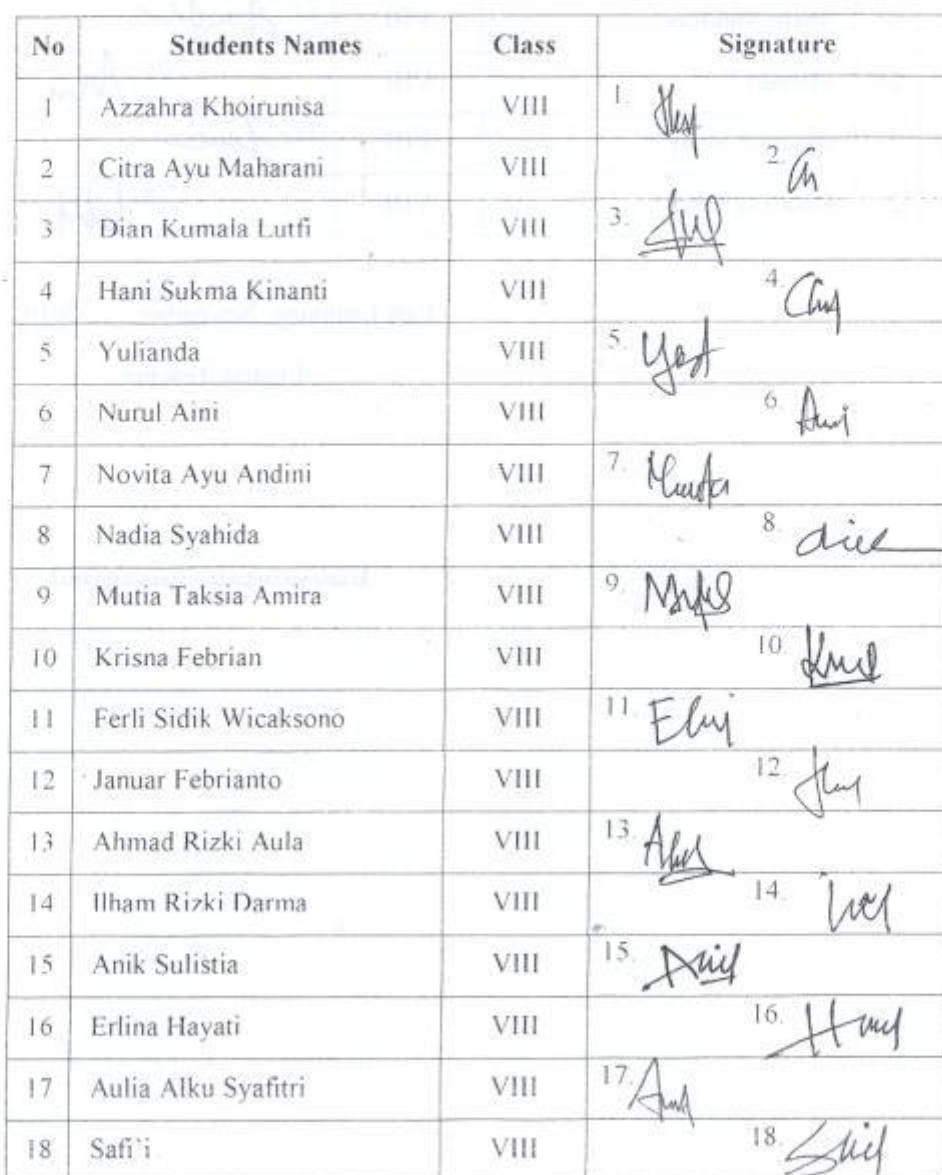 No Students Names Class Signature
1 Azzahra Khoirunisa VIII 1.
2 Citra Ayu Maharani VIII 2.
3 Dian Kumala Lutfi VIII 3.
4 Hani Sukma Kinanti VIII 4.
5 Yulianda VIII 5.
6 Nurul Aini VIII 6.
7 Novita Ayu Andini VIII 7.
8 Nadia Syahida VIII 8.
9 Mutia Taksia Amira VIII 9.
10 Krisna Febrian VIII 10.
11 Ferli Sidik Wicaksono VIII 11.
12 Januar Febrianto VIII 12
13 Ahmad Rizki Aula VIII 13.
14 Ilham Rizki Darma VIII 14.
15 Anik Sulistia VIII 15.
16 Erlina Hayati VIII 16.
17 Aulia Alku Syafitri VIII 17.
18 Safi`i VIII 18.